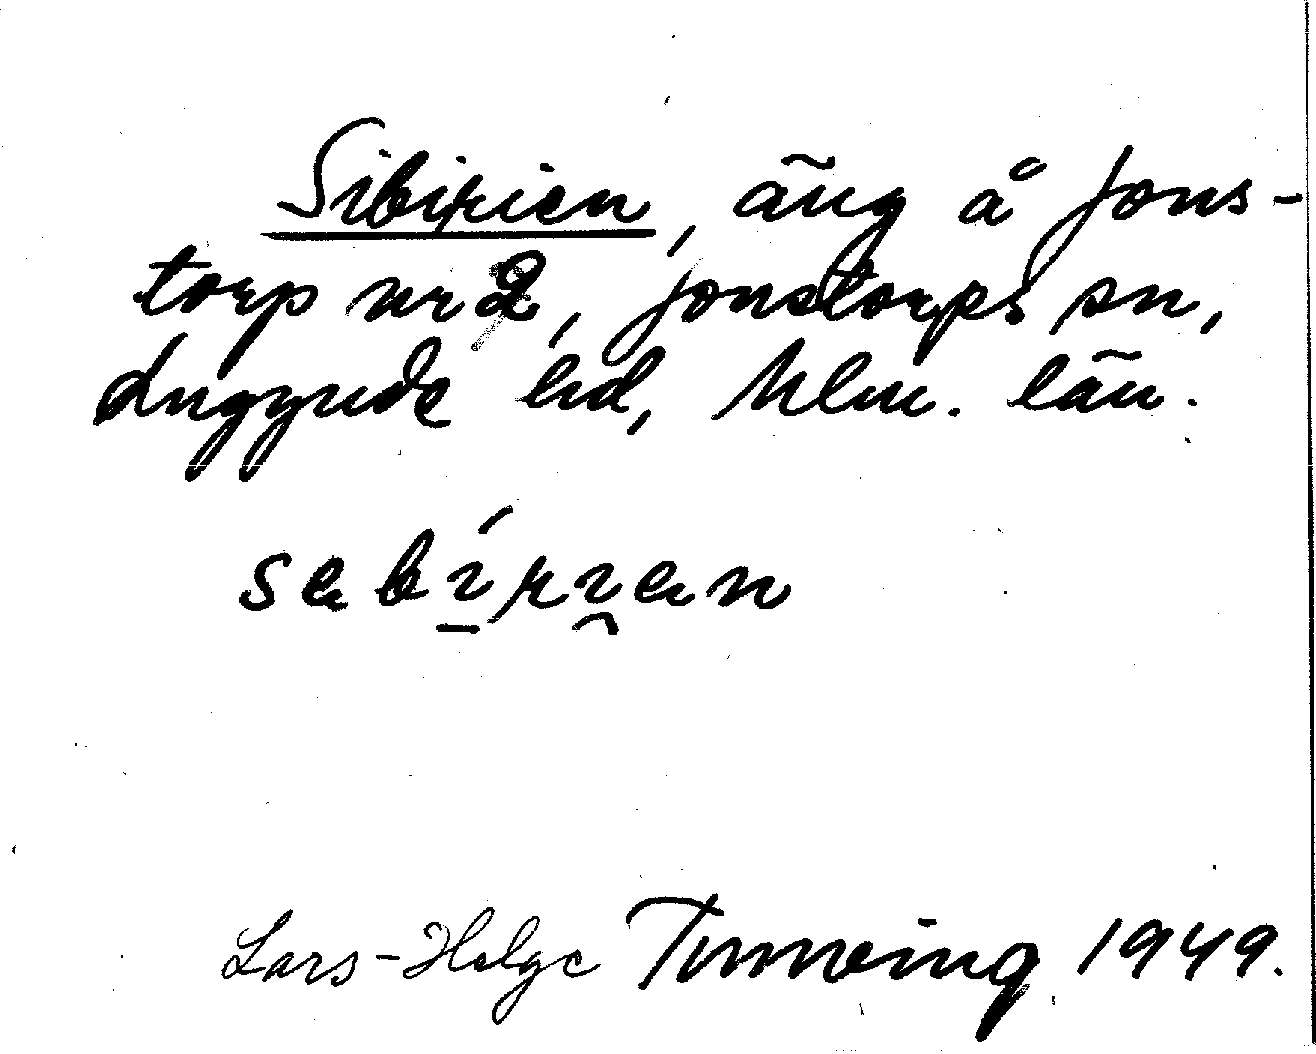 Sibirien, äng å Jons-
torp nr 2, Jonstorps sn,
Luggude hd, Mlm. län.
sabirian
Lars-Helge Tunving 1949.